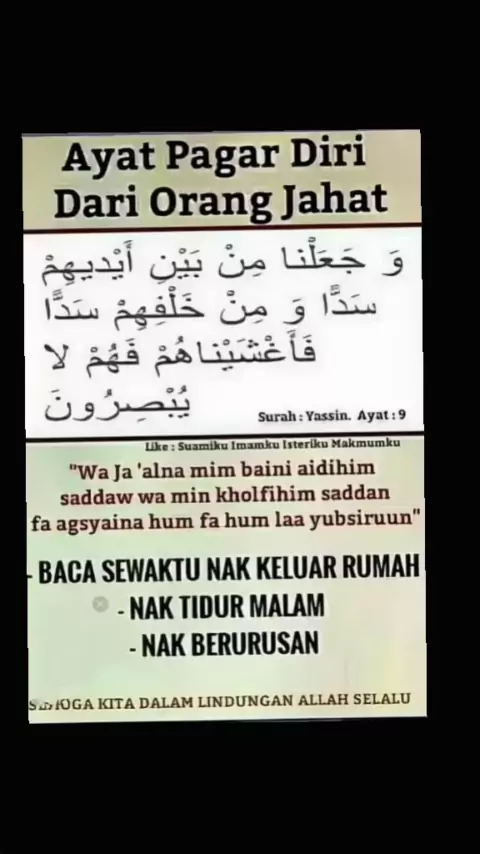 Ayat Pagar Diri
Dari Orang Jahat
وَ جَعَلْنا مِنْ بَيْنِ أَيْديهِمْ
سَدًّا وَ مِنْ خَلْفِهِمْ سَدًّا
فَأَغْشَيْناهُمْ فَهُمْ لا
يُبْصِرُونَ
Surah : Yassin. Ayat : 9
Like : Suamiku Imamku Isteriku Makmumku
"Wa Ja 'alna mim baini aidihim
saddaw wa min kholfihim saddan
fa agsyaina hum fa hum laa yubsiruun"
- BACA SEWAKTU NAK KELUAR RUMAH
- NAK TIDUR MALAM
- NAK BERURUSAN
KITA DALAM LINDUNGAN ALLAH SELALU